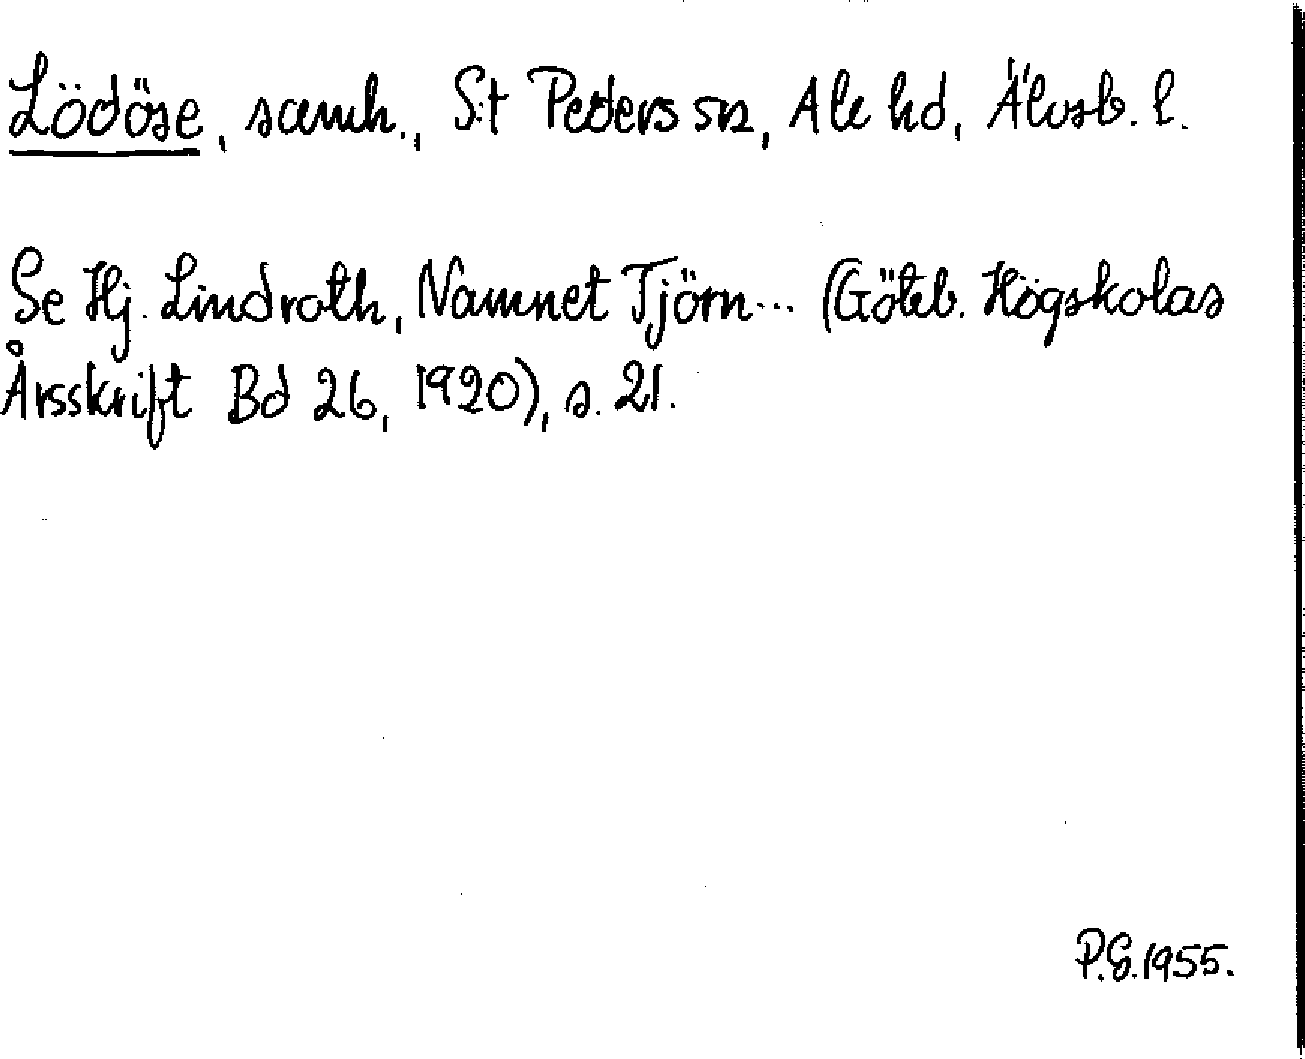 Lödöse, samh., S:t Peders sn, Ale hd, Älvsb. l.
Se Hj. Lindroth, Namnet Tjörn... (Göteb. Högskolas
Årsskrift Bd 26, 1920), s. 21.
P.G.1955.